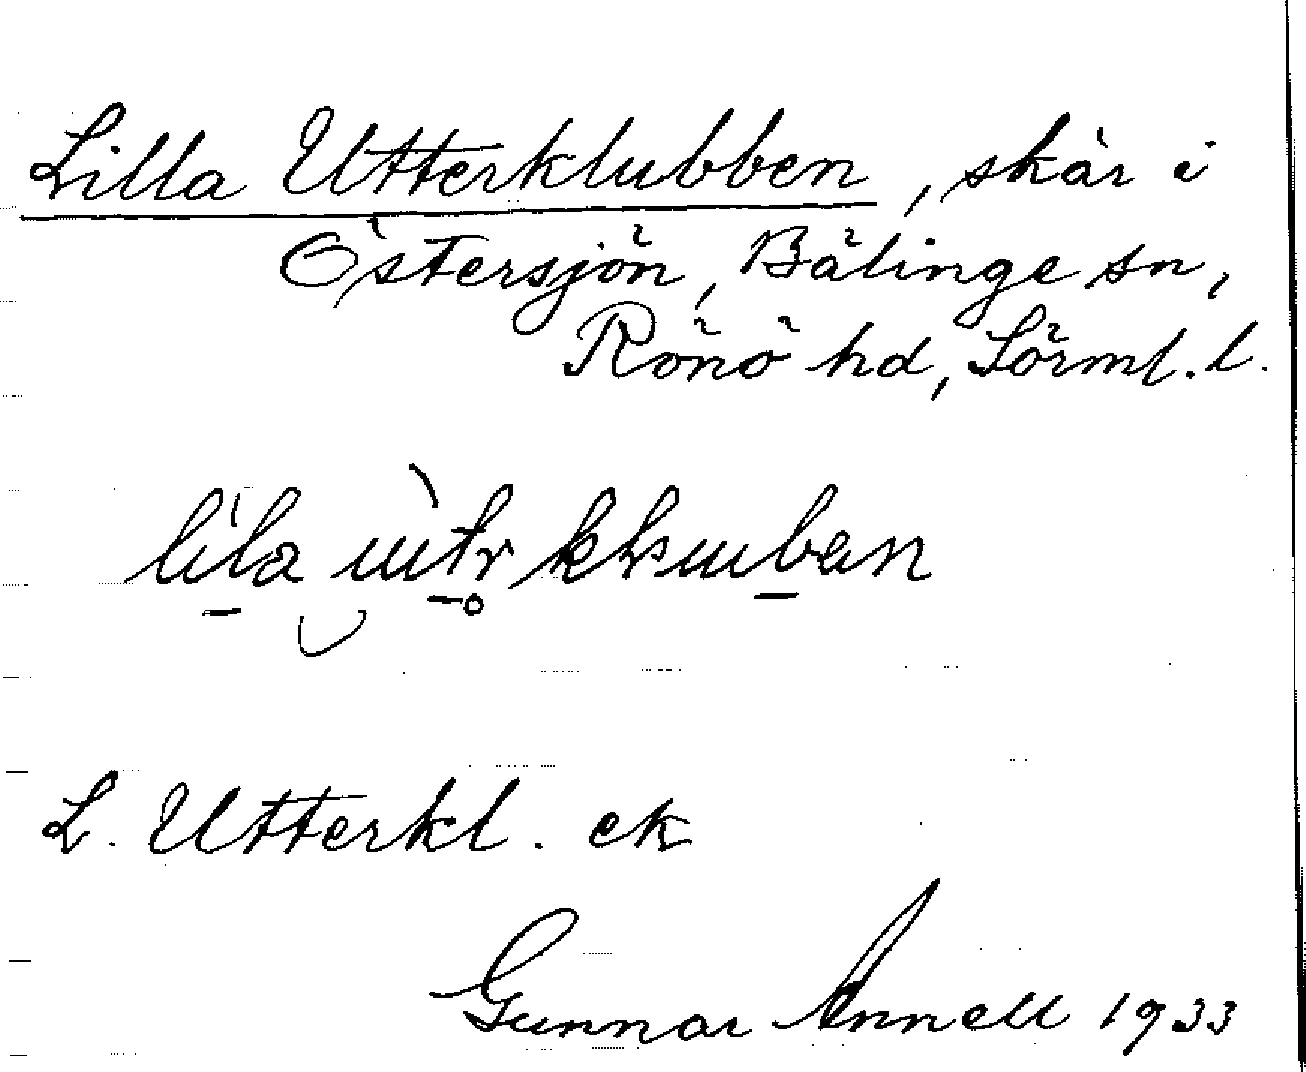 Lilla Utterklubben, skär i
Östersjön, Bälinge sn,
Rönö hd, Sörml. l.
L. Utterkl. ek
Gunnar Annell 1933